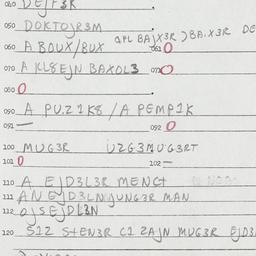 040 DEJF3R
050 DOKTOJR3M
060 A BOUX/BUX QPL BAJX3R JBAIX3R DE
061 0
070 A KL8EJN BAXOL3 071 0
080 0
090 A PUZ1K8 / A PEMP1K
091 — 092 0
100 MUG3R UZG3MUG3RT
101 0 102 —
110 A EJD3L3R MENCT
111 AN EJD3LNJUNG3R MAN
112 OJSEJDL3N
120 S12 STEN3R C1 ZAJN MUG3R EJD3